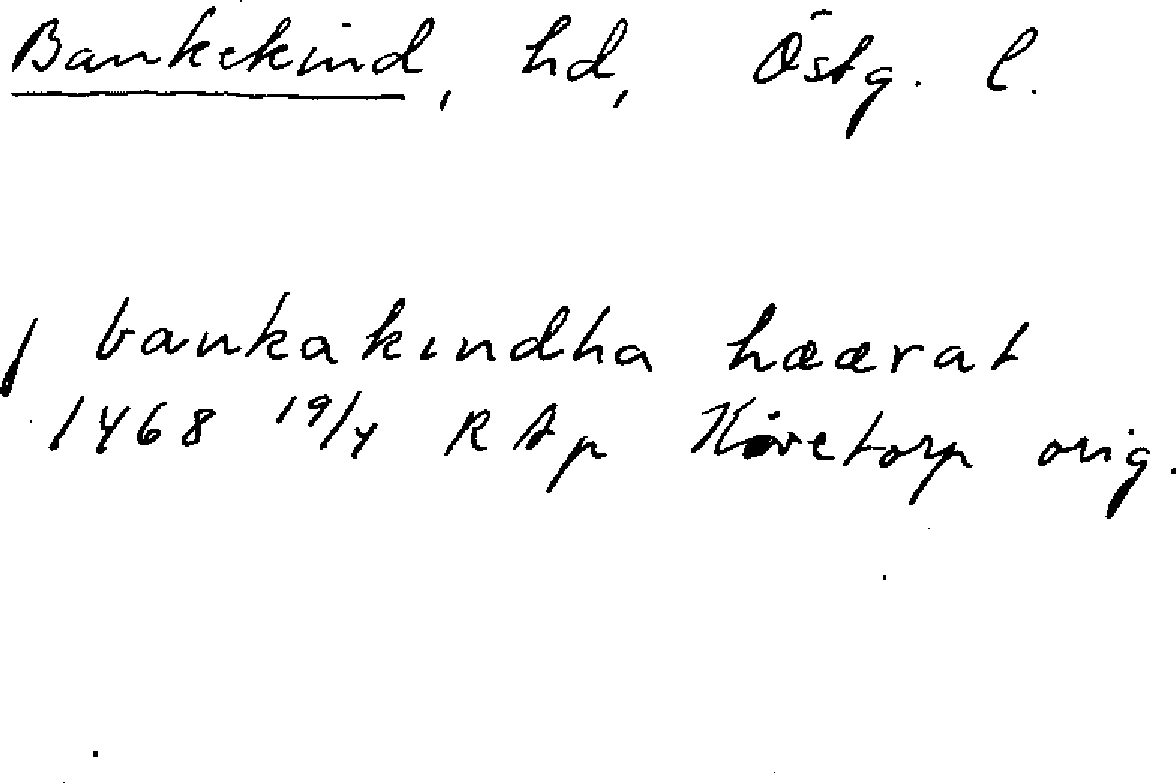 Bankekind, hd, Östg. l.
j bankakindha hæærat
1468 19/4 R Ap orig.